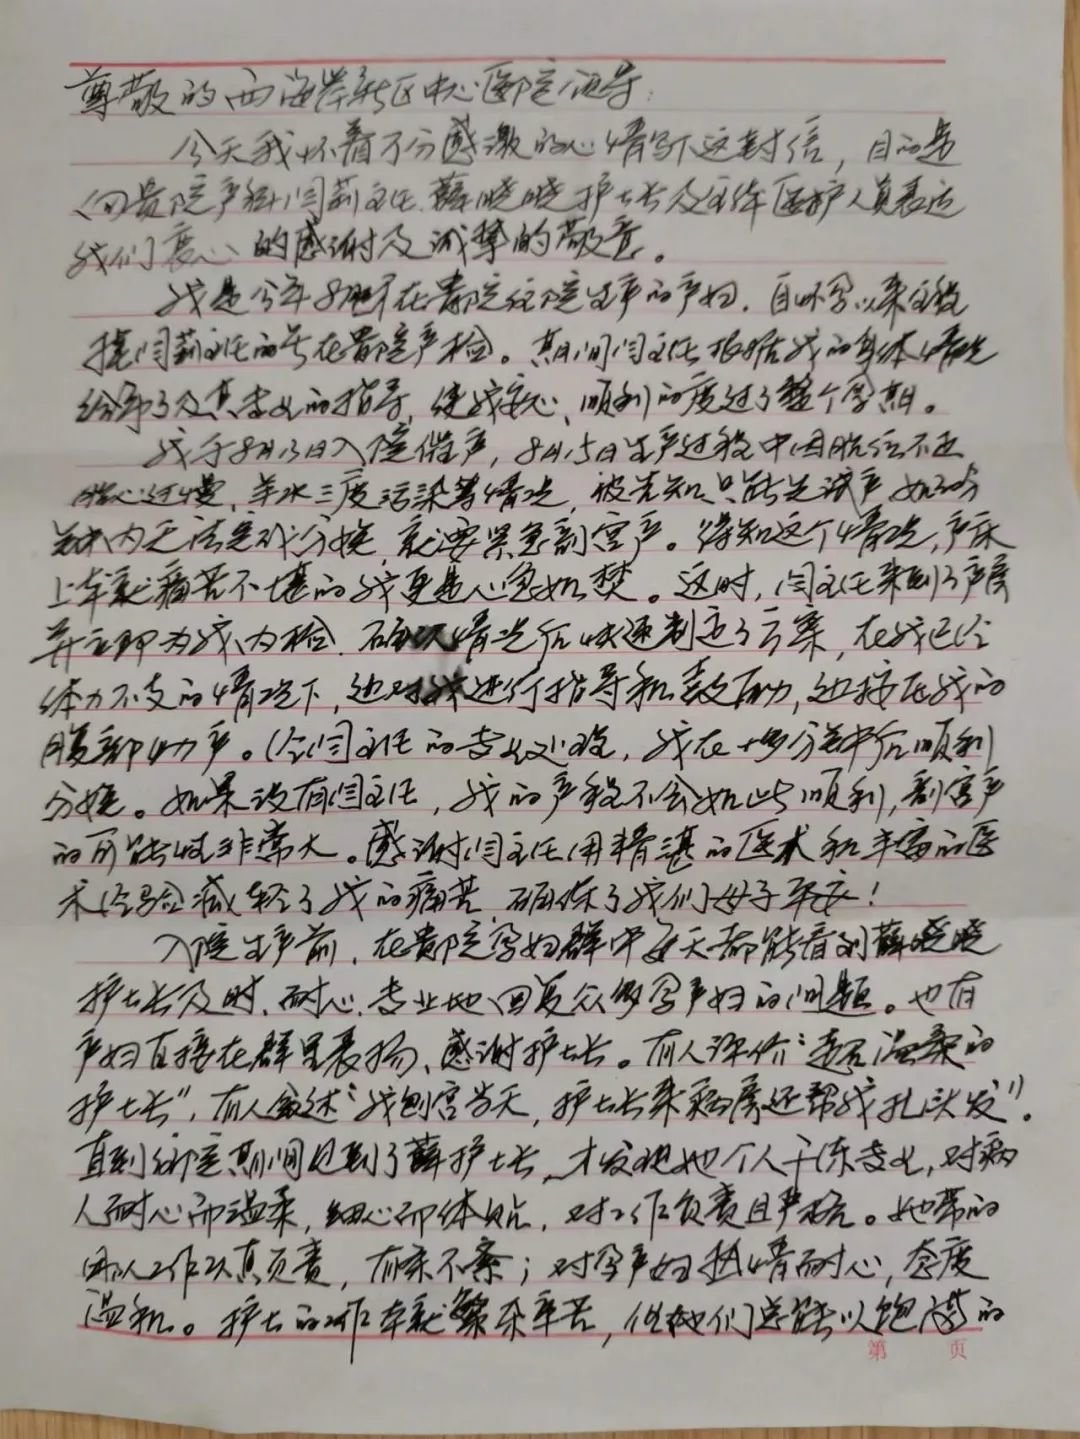 尊敬的西海岸新区中心医院领导:
今天我怀着万分感激的心情写下这封信，目的是
向贵院产科闫莉主任、薛晓晓护士长及全体医护人员表达
我们衷心的感谢及诚挚的敬意。
我是今年8月在贵院住院生产的产妇，自怀孕以来全程
挂闫莉主任的号在贵院产检。期间闫主任根据我的身体情况
给予了及其专业的指导，使我安心、顺利的度过了整个孕期。
我于8月13日入院催产，8月15日生产过程中因胎位不正
胎心过慢，羊水三度污染等情况，被告知只能先试产如
内无法完成分娩，就要紧急剖宫产。得知这个情况，产床
上本就痛苦不堪的我更是心急如焚。这时，闫主任来到了产房
并立即为我内检，确认情况后快速制定了方案，在我已经
体力不支的情况下，边对我进行指导和鼓励，边按在我的
腹部助产。经闫主任的专业处理，我在十多分钟后顺利
分娩。如果没有闫主任，我的产程不会如此顺利，剖宫产
的可能性非常大。感谢闫主任用精湛的医术和丰富的医
术经验减轻了我的痛苦，确保了我们母子平安！
入院生产前，在贵院孕妇群中每天都能看到薛晓晓
护士长及时、耐心、专业地回复众多孕产妇的问题。也有
产妇直接在群里表扬、感谢护士长。有人评价“声音温柔的
护士长”，有人叙述“我刨宫当天，护士长来病房还帮我扎头发”。
直到住院期间见到了薛护士长，才发现她个人干练专业，对病
人耐心而温柔，细心而体贴，对工作负责且严格。她带的
团队工作认真负责，有条不紊；对孕产妇热情而耐心，态度
温和。护士的工作本就繁杂辛苦，但她们总能以饱满的
第 页